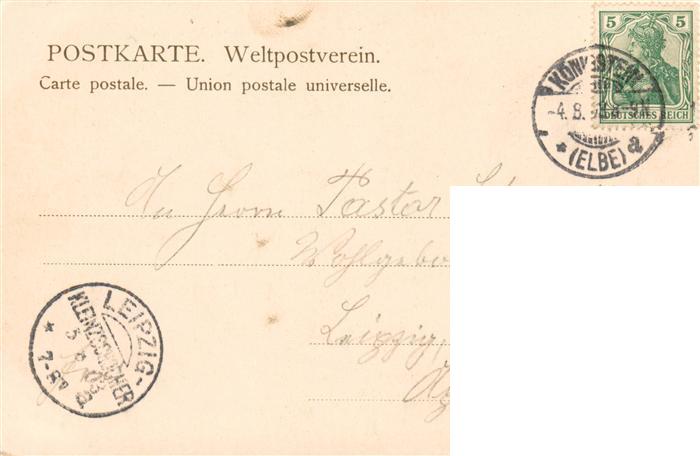 POSTKARTE. Weltpostverein.
Carte postale. — Union postale universelle.
5 5
DEUTSCHES REICH
KÖNIGSTEIN
-4.8. 8-9N
* (ELBE) a *
An Herrn Pastor
Wohlgebo
Leipzig,
LEIPZIG-
KLEINZSCHOCHER
5 8 03
7-8V
a